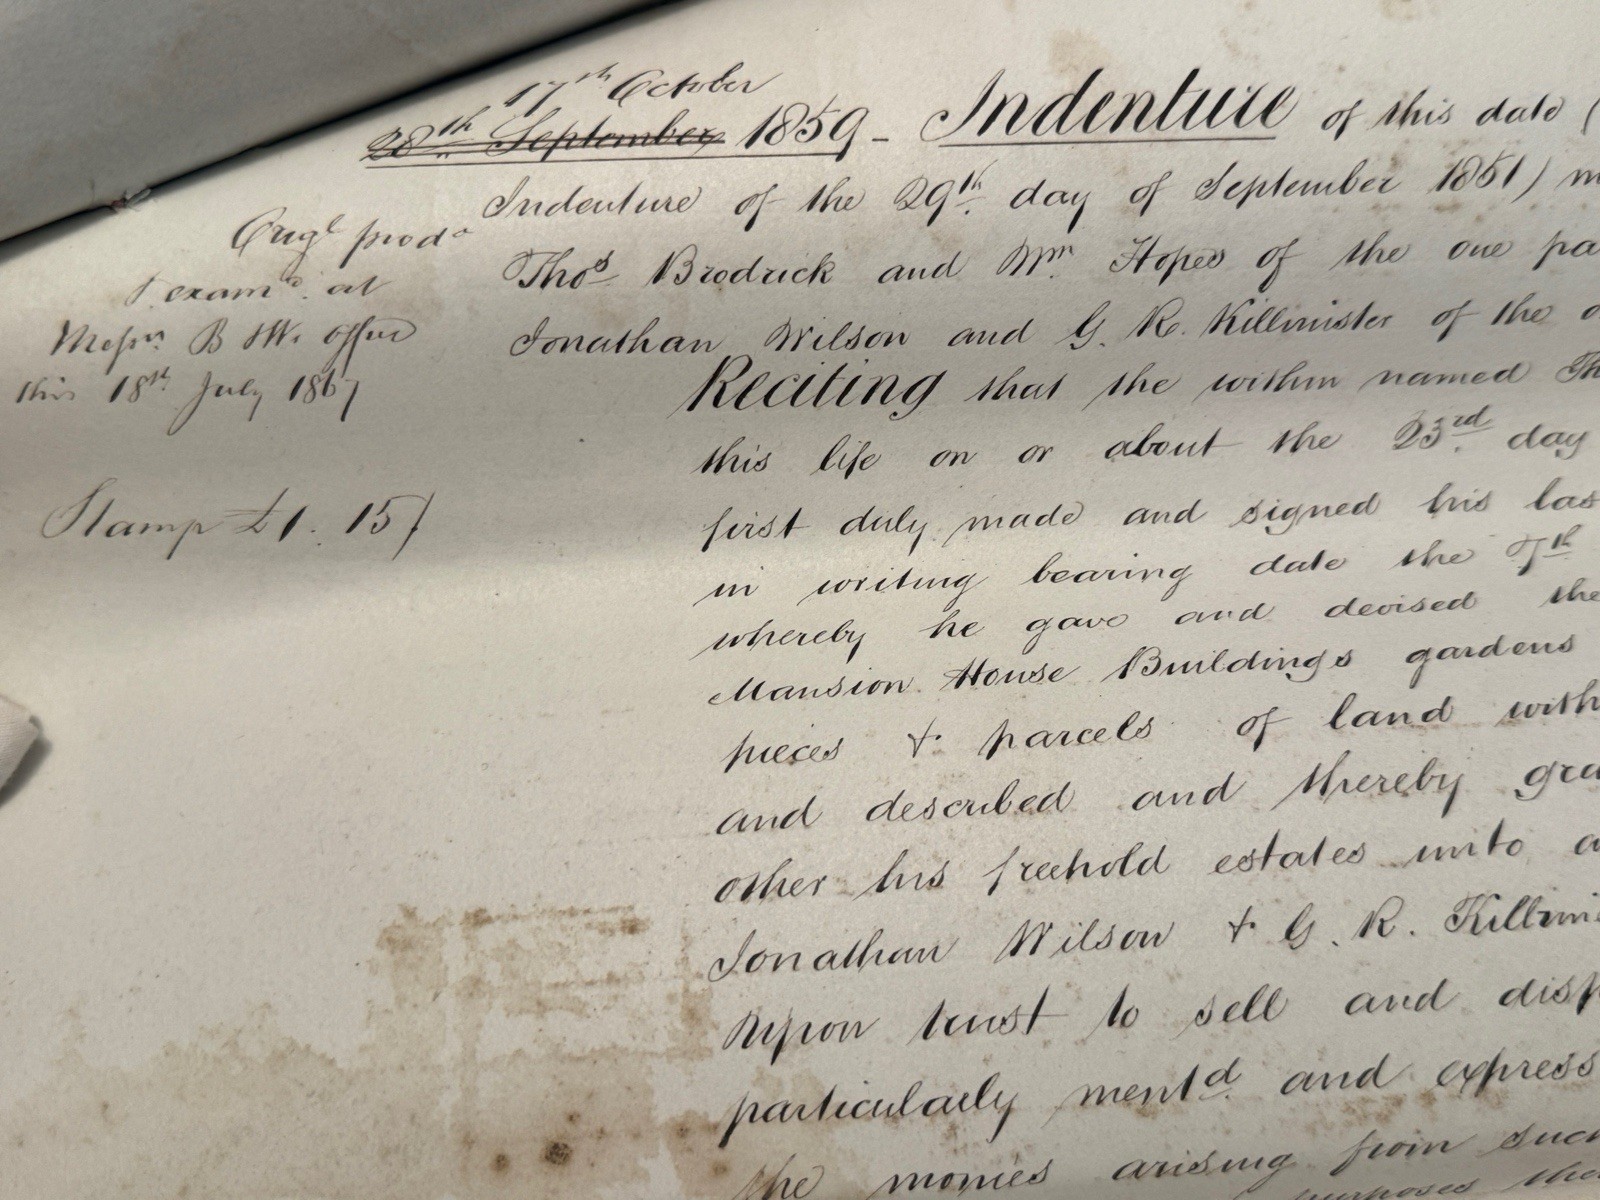 17th October
28th September 1859 - Indenture of this date (
Indenture of the 29th day of September 1851) m
Thos Brodrick and Wm Hopes of the one pa
Jonathan Wilson and G. R. Killmister of the o
Reciting that the within named Th
this life on or about the 23rd day
first duly made and signed his las
in writing bearing date the 7th
whereby he gave and devised the
Mansion House Buildings gardens
pieces & parcels of land with
and described and thereby gra
other his freehold estates unto a
Jonathan Wilson & G. R. Killmi
Upon trust to sell and disp
particularly mentd and express
the monies arising from such
purposes tha
Origl prodd
& examd at
Messrs B & W. office
this 18th July 1867
Stamp £1. 15/